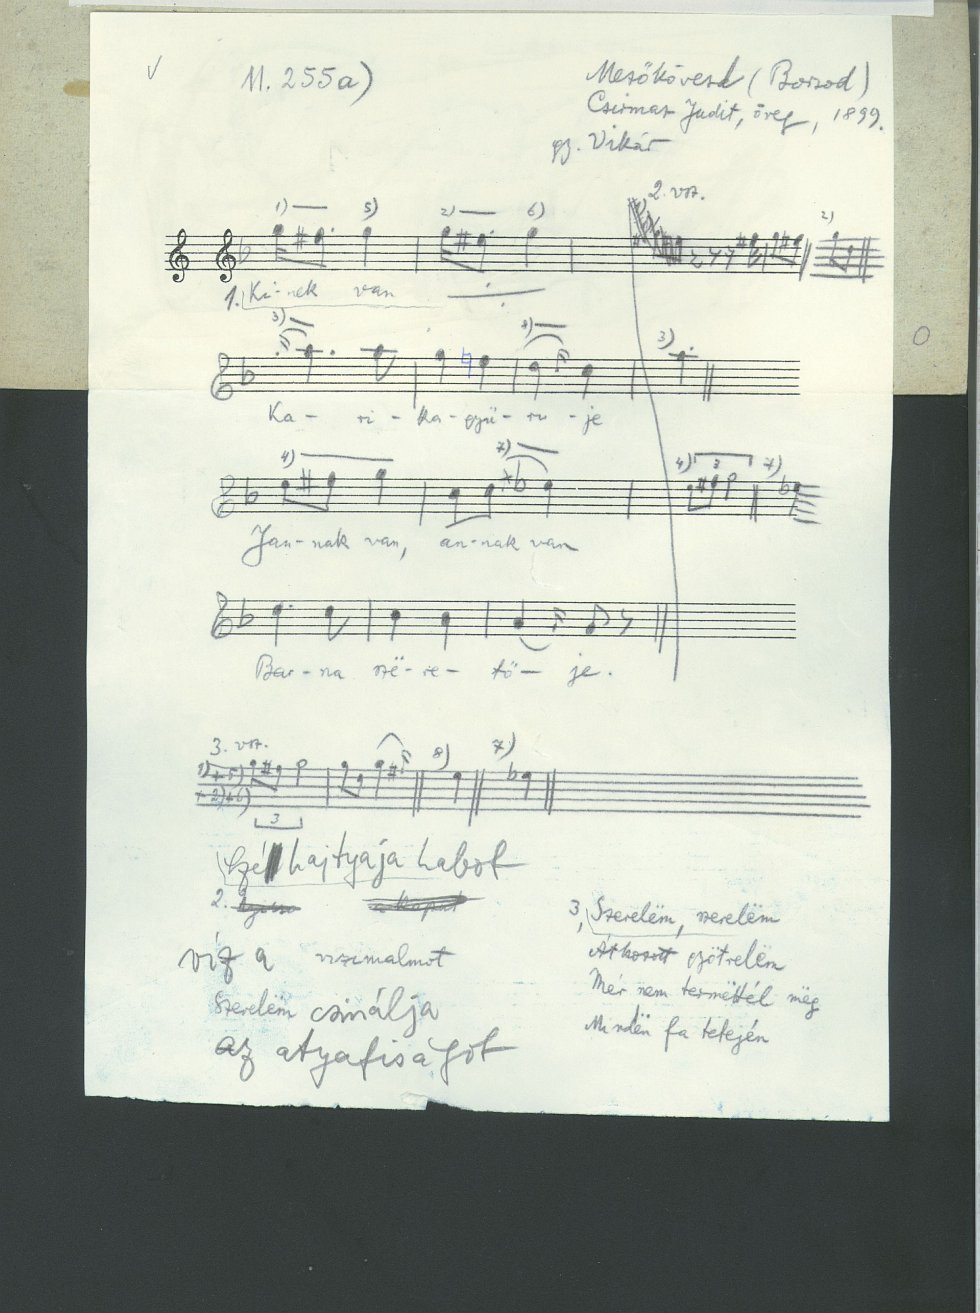 M. 255a)
Mezőkövesd (Borsod)
Csirmaz Judit, öreg, 1899.
gy. Vikár
2. vsz.
1) 5) 2) 6) 2)
1. Ki-nek van
3) 8) 3)
Ka - ri - ka - gyü - rü - je
4) 7) 4) 3 7)
Jan-nak van, an-nak van
Bar-na szë-re-tő- je.
3. vsz.
1)+5) 8) 7)
+2)+6)
3
Szél hajtyája habot
2.
víz a vizimalmot
Szerelëm csinálja
az atyafiságot
3, Szerelëm, szerelëm
Átkozott gyötrelëm
Mér nem termëttél mëg
Mindën fa tetején